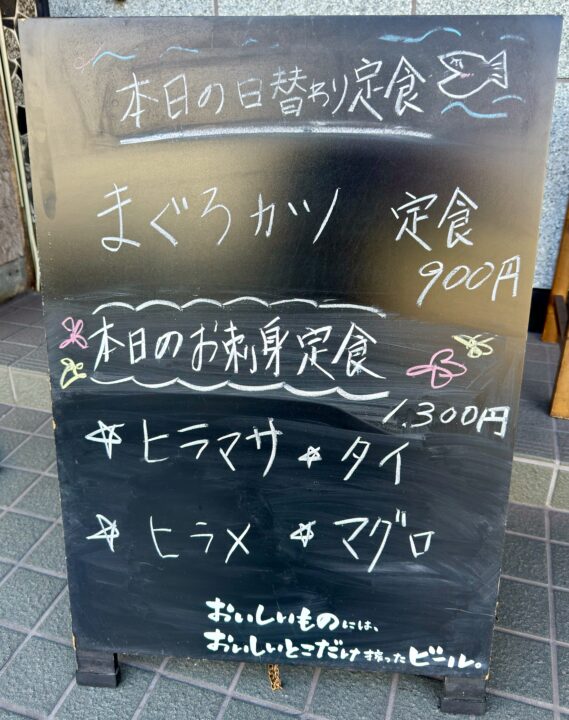 本日の日替わり定食
まぐろカツ 定食
900円
本日のお刺身定食
1,300円
☆ヒラマサ ☆タイ
☆ヒラメ ☆マグロ
おいしいものには、
おいしいとこだけ搾ったビール。